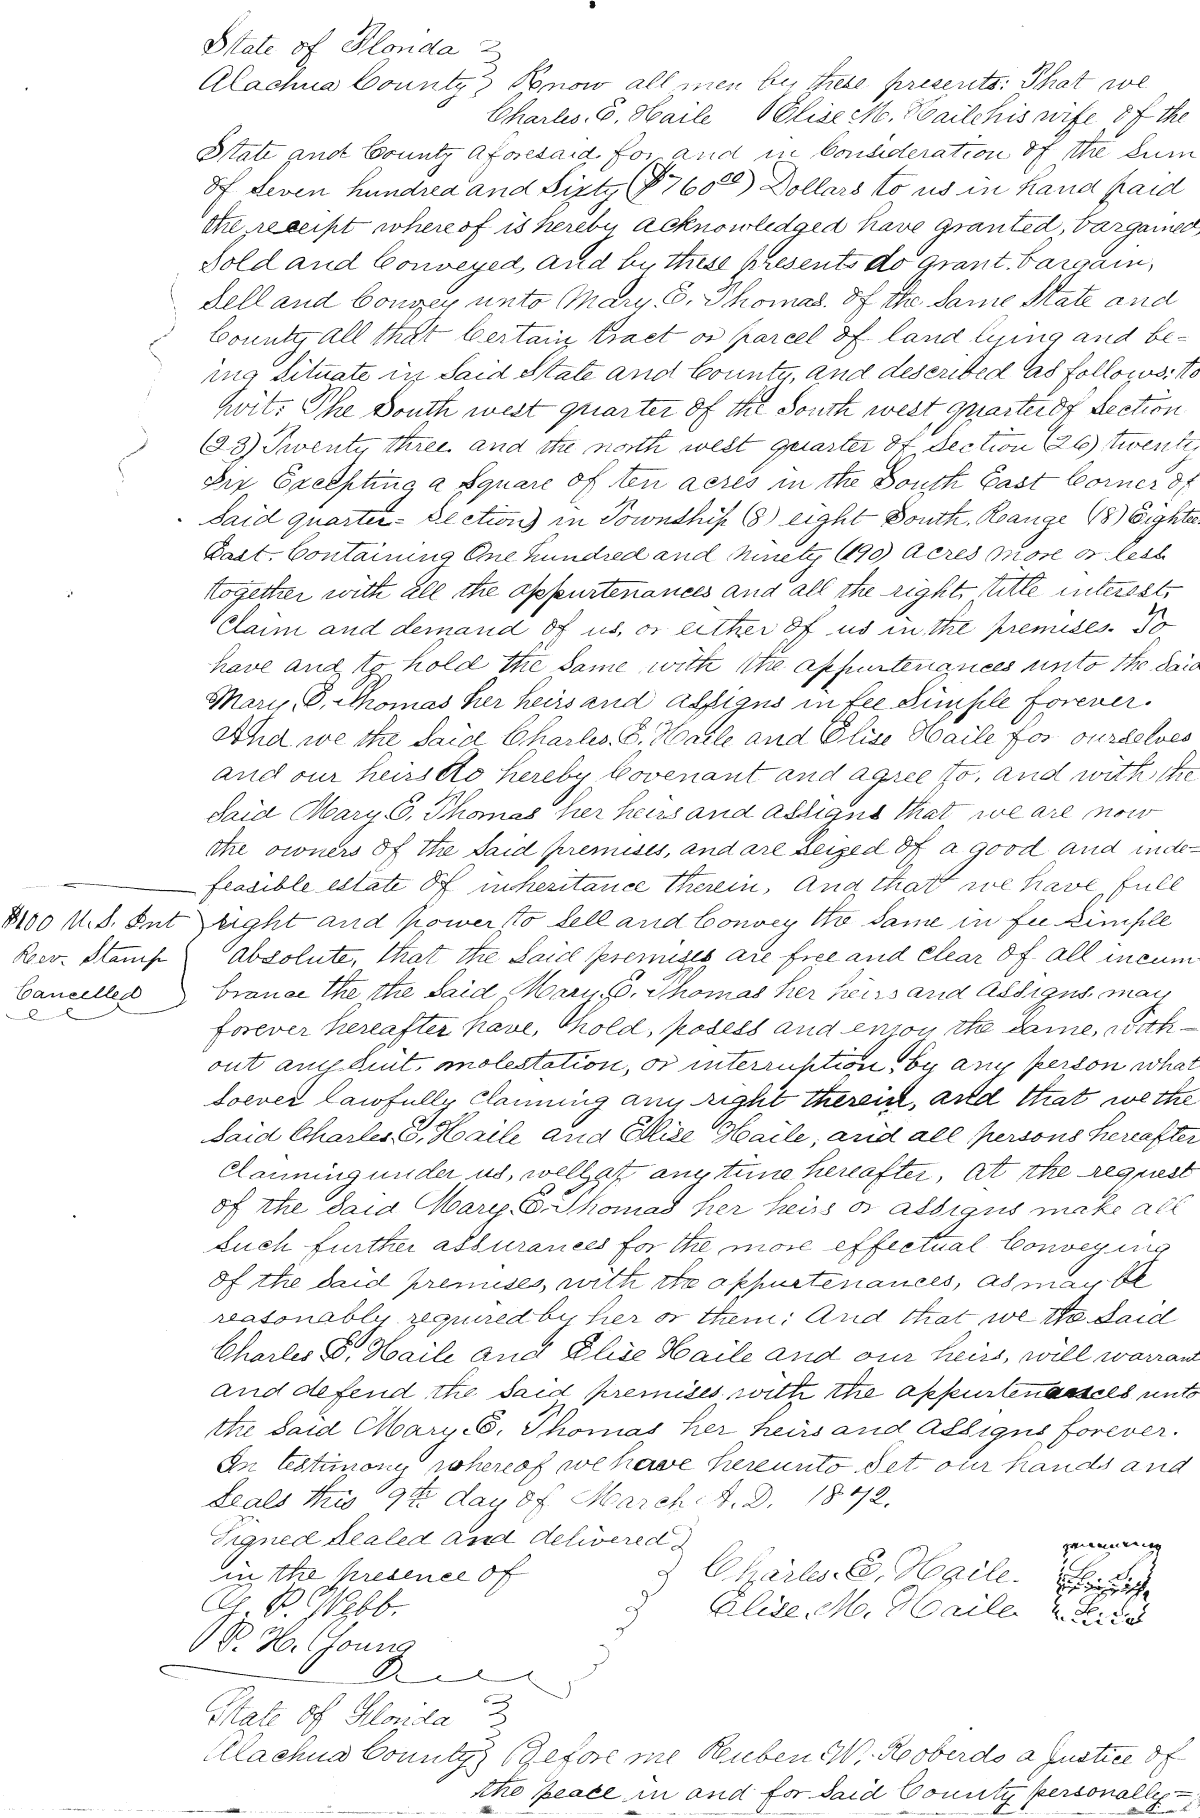 State of Florida }
Alachua County } Know all men by these presents: That we
Charles. E. Haile Elise M. Haile his wife of the
State and County aforesaid for and in Consideration of the Sum
of Seven hundred and Sixty ($760 00) Dollars to us in hand paid
the receipt whereof is hereby acknowledged have granted, bargained,
Sold and Conveyed, and by these presents do grant. bargain,
Sell and Convey unto Mary. E. Thomas. of the Same State and
County all that Certain tract or parcel of land lying and be-
ing Situate in Said State and County, and described as follows: to
wit: The South west quarter of the South west quarter of Section
(23) Twenty three. and the north west quarter of Section (26) twenty
Six Excepting a Square of ten acres in the South East Corner of
Said quarter = Section) in Township (8) eight South. Range (18) Eightee
East. Containing One hundred and ninety (190) acres more or less
together with all the appurtenances and all the right, title interest,
Claim and demand of us, or either of us in the premises. To
have and to hold the Same with the appurtenances unto the Said
Mary. E. Thomas her heirs and assigns in fee Simple forever.
And we the Said Charles. E. Haile and Elise Haile for ourselves
and our heirs do hereby Covenant and agree to, and with the
Said Mary E. Thomas her heirs and assigns that we are now
the owners of the Said premises, and are Seized of a good and inde=
feasible estate of inheritance therein, And that we have full
$1.00 U.S. Int } right and power to Sell and Convey the Same in fee Simple
Rev. Stamp } absolute, that the Said premises are free and clear of all incum
Cancelled } brance the the Said Mary. E. Thomas her heirs and assigns may
forever hereafter have, hold, posess and enjoy the Same, with-
out any Suit, molestation, or interruption, by any person what
Soever lawfully Claiming any right therein, and that we the
Said Charles. E. Haile and Elise Haile, and all persons hereafter
Claiming under us, well at any time hereafter, at the request
of the Said Mary. E. Thomas her heirs or assigns make all
Such further assurances for the more effectual Conveying
of the Said premises, with the appurtenances, as may be
reasonably required by her or them; And that we the Said
Charles E. Haile and Elise Haile and our heirs, will warrant
and defend the Said premises with the appurtenances unto
the Said Mary. E. Thomas her heirs and assigns forever.
In testimony whereof we have hereunto Set our hands and
Seals this 9th day of March A. D. 1872.
Signed Sealed and delivered }
in the presence of } Charles. E. Haile. L. S.
P. Webb. } Elise. M. Haile L. S.
P. H. Young
State of Florida }
Alachua County } Before me Reuben W. Roberds a Justice of
the peace in and for Said County personally =